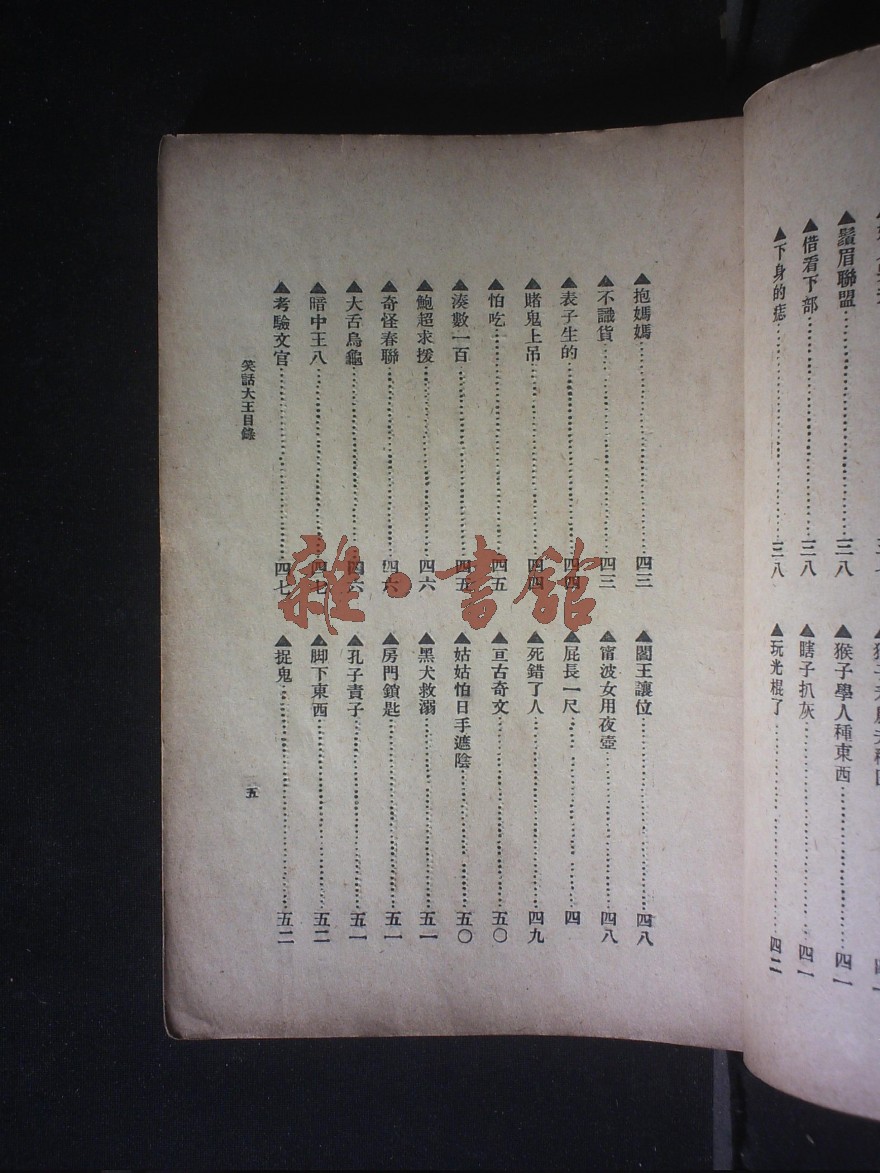 ▲鬚眉聯盟……三八
▲借看下部……三八
▲下身的痣……三八
▲猴子學人種東西……四一
▲瞎子扒灰……四一
▲玩光棍了……四二
▲抱媽媽……四三
▲不識貨……四三
▲表子生的……四四
▲賭鬼上吊……四四
▲怕吃……四五
▲湊數一百……四五
▲鮑超求援……四六
▲奇怪春聯……四六
▲大舌烏龜……四六
▲暗中王八……四七
▲考驗文官……四七
▲閻王讓位……四八
▲甯波女用夜壺……四八
▲屁長一尺……四
▲死錯了人……四九
▲亘古奇文……五〇
▲姑姑怕日手遮陰……五〇
▲黑犬救溺……五一
▲房門鎖匙……五一
▲孔子責子……五一
▲脚下東西……五二
▲捉鬼……五二
笑話大王目錄
五
雜·書館